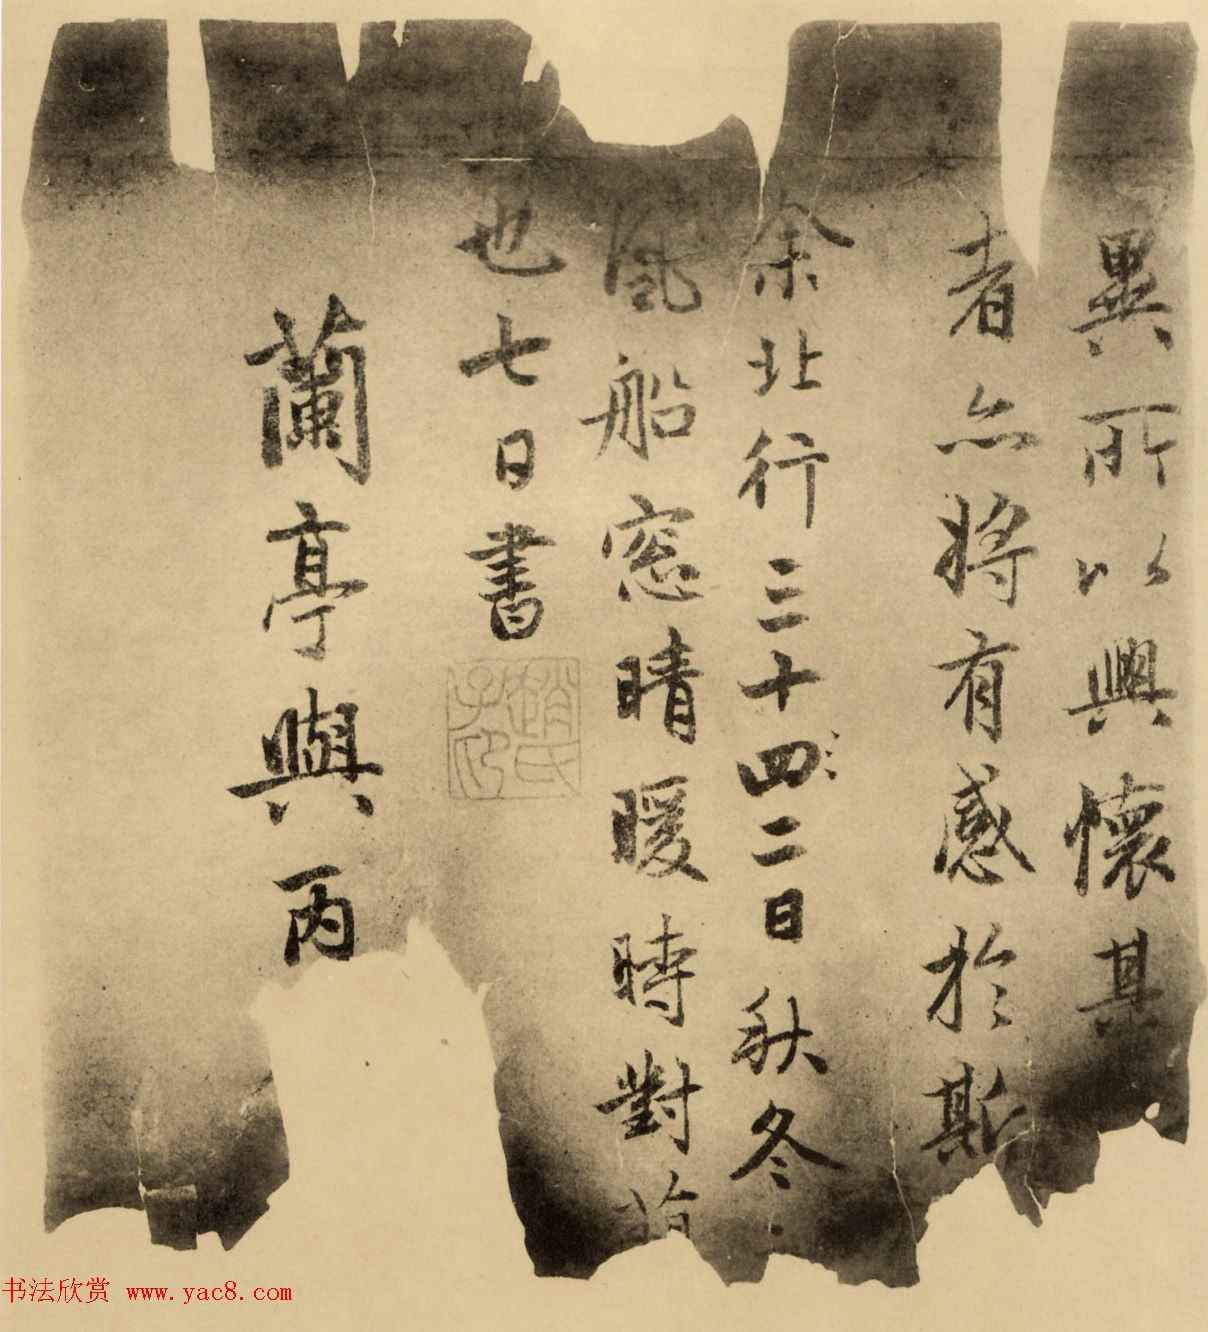 異所以興懷其
者亦將有感於斯
余北行三十四二日秋冬
風船窓晴暖時對
也七日書
趙氏子印
蘭亭與丙
书法欣赏 www.yac8.com